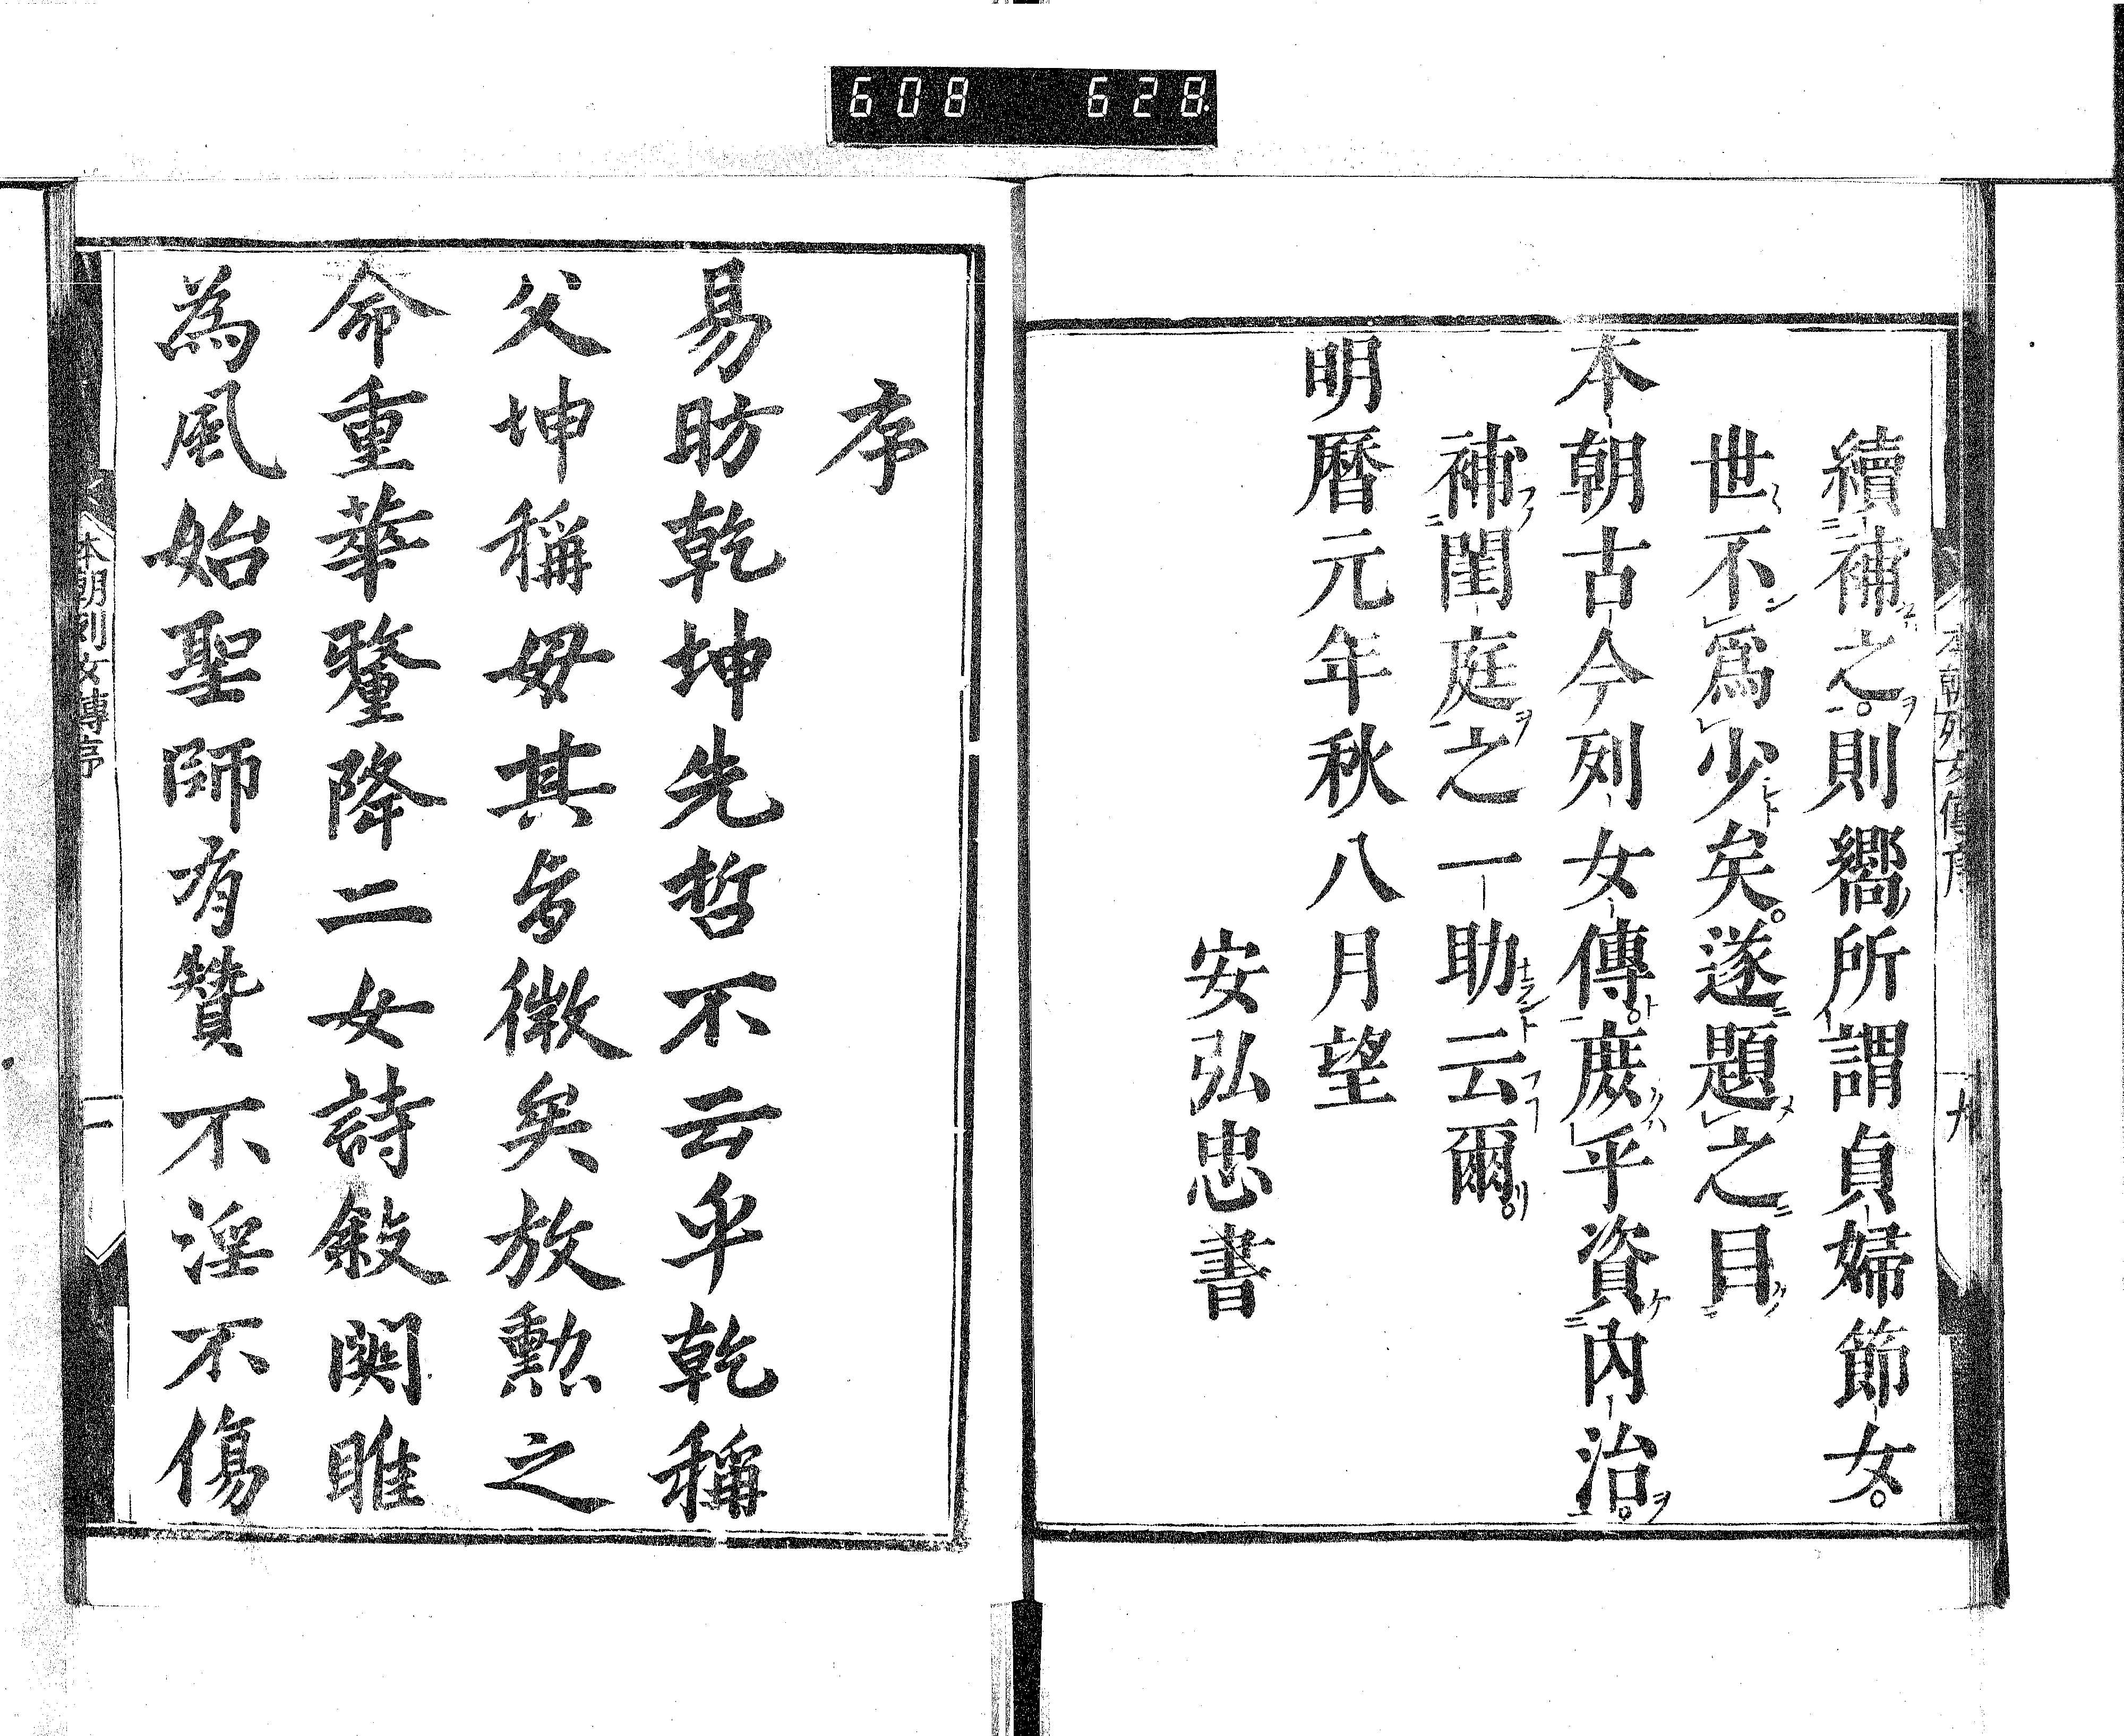 608 628
續補之則嚮所謂貞婦節女
世不爲少矣遂題之目
本朝古今列女傳庶乎資內治
補閨庭之一助云爾
明曆元年秋八月望
安弘忠書
序
易昉乾坤先哲不云乎乾稱
父坤稱母其旨徵矣放勲之
命重華釐降二女詩敍関雎
為風始聖師有贊不淫不傷
本朝列女傳序